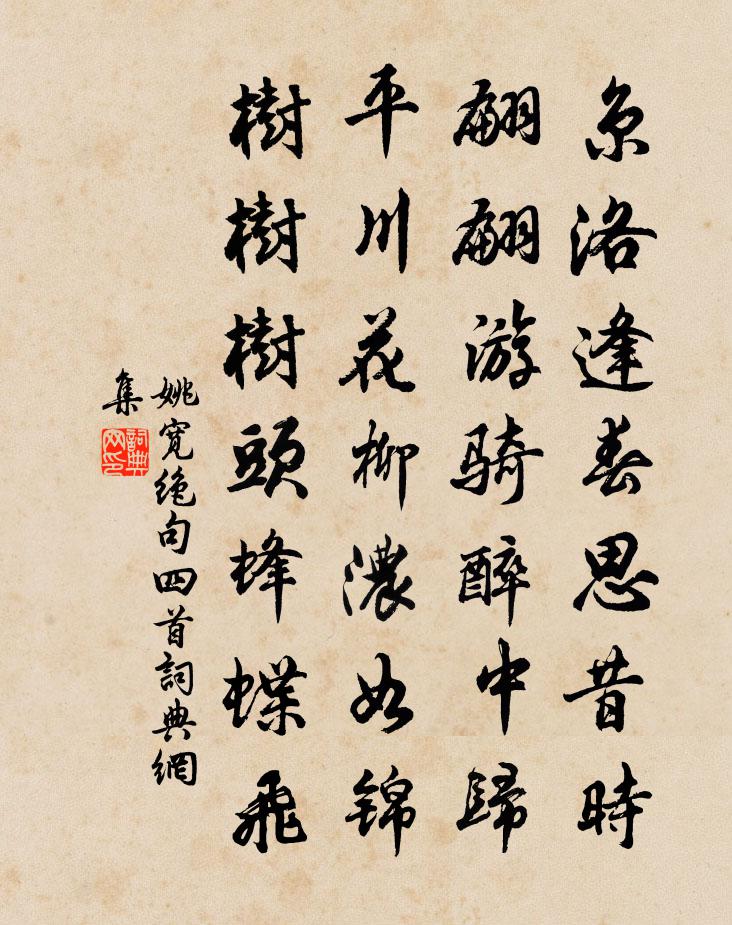 京洛逢春思昔時
翩翩游騎醉中歸
平川花柳濃如錦
樹樹樹頭蜂蝶飛
姚寬絶句四首詞典網
集
詞典
网印